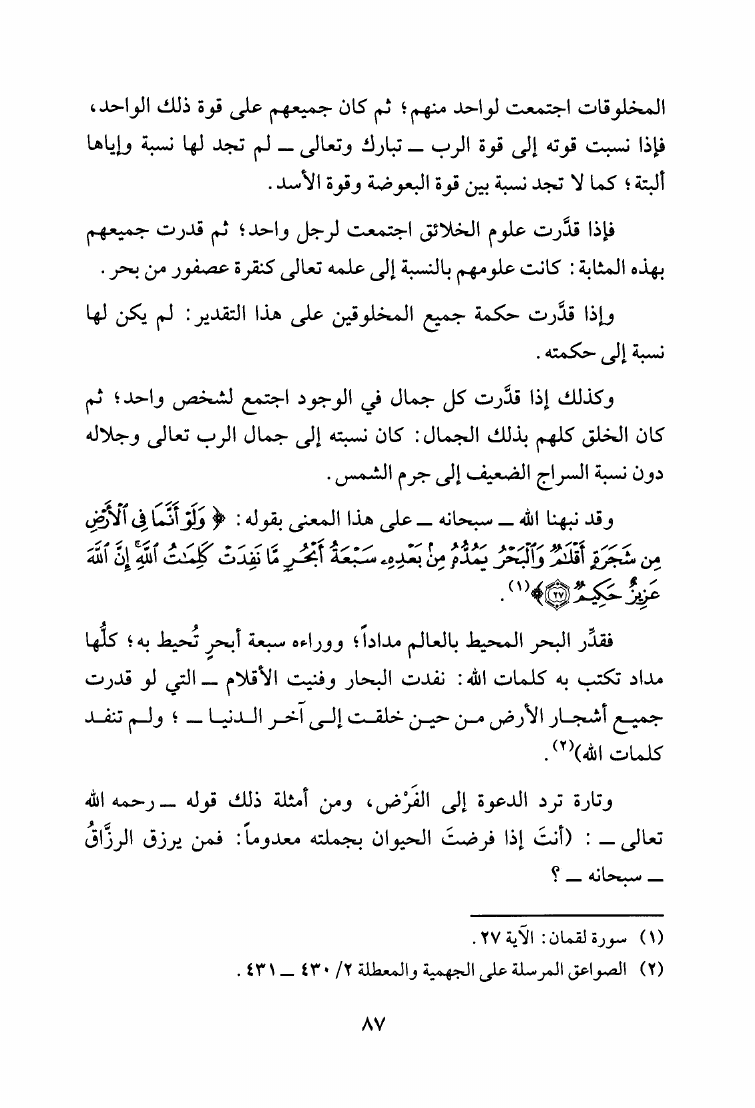 المخلوقات اجتمعت لواحد منهم؛ ثم كان جميعهم على قوة ذلك الواحد،
فإذا نسبت قوته إلى قوة الرب ــ تبارك وتعالى ــ لم تجد لها نسبة وإياها
ألبتة؛ كما لا تجد نسبة بين قوة البعوضة وقوة الأسد.
فإذا قدَّرت علوم الخلائق اجتمعت لرجل واحد؛ ثم قدرت جميعهم
بهذه المثابة: كانت علومهم بالنسبة إلى علمه تعالى كنقرة عصفور من بحر.
وإذا قدَّرت حكمة جميع المخلوقين على هذا التقدير: لم يكن لها
نسبة إلى حكمته.
وكذلك إذا قدَّرت كل جمال في الوجود اجتمع لشخص واحد؛ ثم
كان الخلق كلهم بذلك الجمال: كان نسبته إلى جمال الرب تعالى وجلاله
دون نسبة السراج الضعيف إلى جرم الشمس.
وقد نبهنا الله ــ سبحانه ــ على هذا المعنى بقوله: ﴿ وَلَوْ أَنَّمَا فِى ٱلْأَرْضِ
مِن شَجَرَةٍ أَقْلَٰمٌ وَٱلْبَحْرُ يَمُدُّهُۥ مِنۢ بَعْدِهِۦ سَبْعَةُ أَبْحُرٍ مَّا نَفِدَتْ كَلِمَٰتُ ٱللَّهِ ۗ إِنَّ ٱللَّهَ
عَزِيزٌ حَكِيمٌ ۝٢٧﴾(١).
فقدِّر البحر المحيط بالعالم مداداً؛ ووراءه سبعة أبحرٍ تُحيط به؛ كلُّها
مداد تكتب به كلمات الله: نفدت البحار وفنيت الأقلام ــ التي لو قدرت
جميع أشجار الأرض من حين خلقت إلى آخر الدنيا ــ ؛ ولم تنفد
كلمات الله)(٢).
وتارة ترد الدعوة إلى الفَرْض، ومن أمثلة ذلك قوله ــ رحمه الله
تعالى ــ : (أنتَ إذا فرضتَ الحيوان بجملته معدوماً: فمن يرزق الرزَّاقُ
ــ سبحانه ــ ؟
(١) سورة لقمان: الآية ٢٧.
(٢) الصواعق المرسلة على الجهمية والمعطلة ٢/ ٤٣٠ ــ ٤٣١.
٨٧